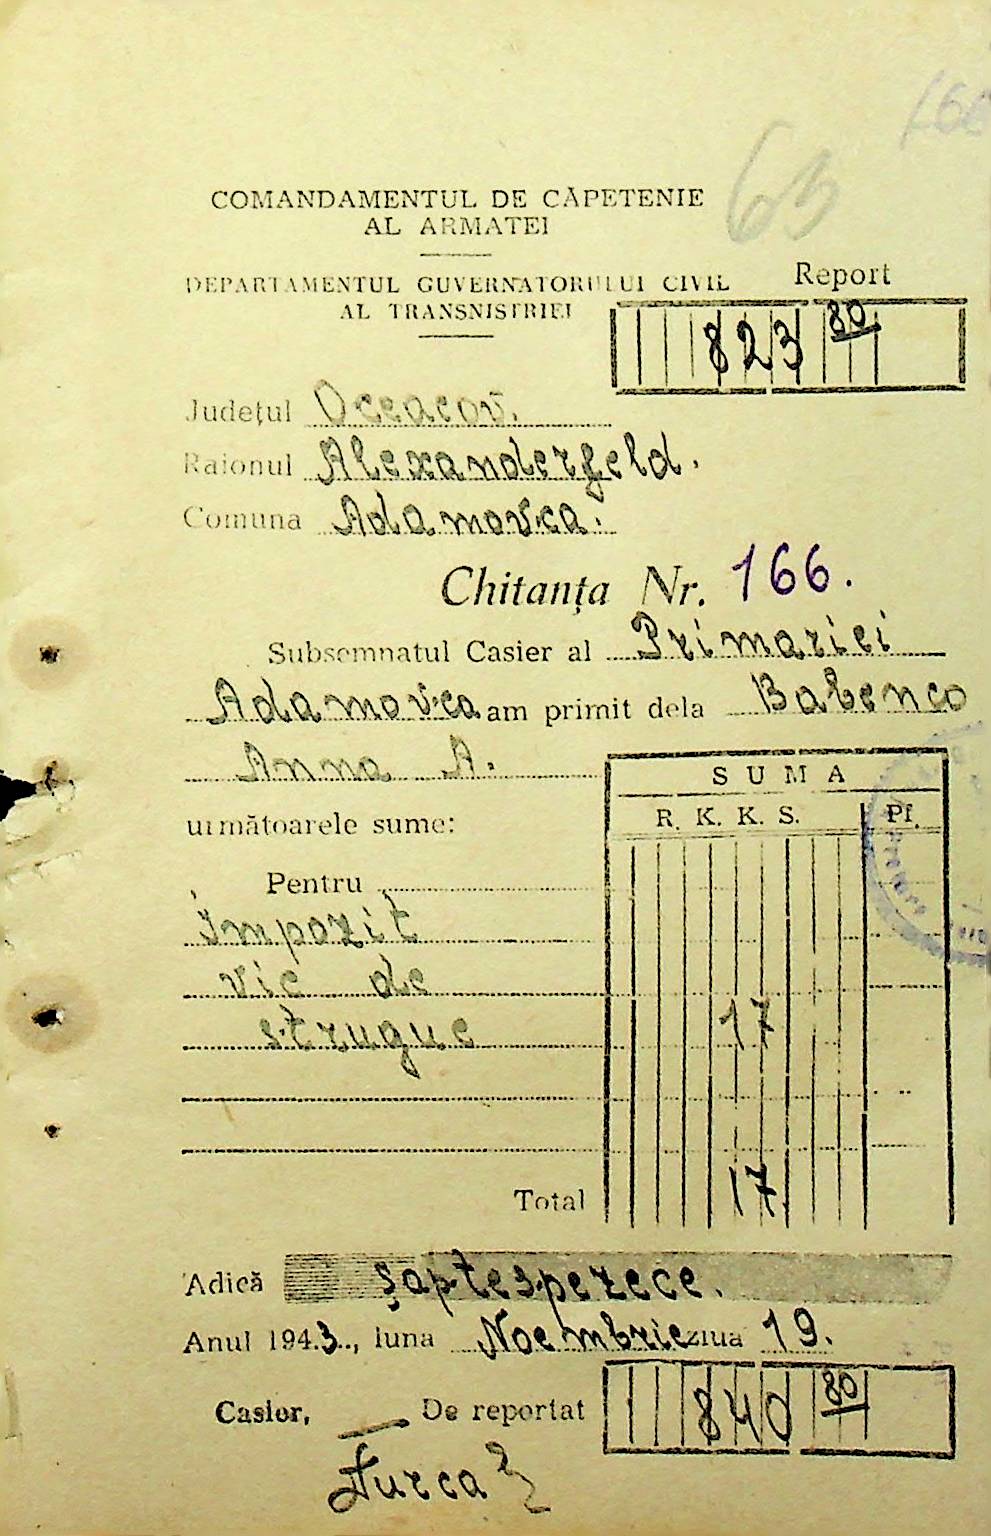 63
COMANDAMENTUL DE CĂPETENIE
AL ARMATEI
DEPARTAMENTUL GUVERNATORULUI CIVIL
AL TRANSNISTRIEI
Report
823 80
Județul Oceacov.
Raionul Alexanderfeld.
Comuna Adamovca.
Chitanța Nr. 166.
Subsemnatul Casier al Primariei
Adamovca am primit dela Babenco
Anna A.
următoarele sume:
SUMA
R. K. K. S. Pf.
Pentru
Impozit
vie de
strugue 17
Total 17
Adică șaptesprezece.
Anul 1943, luna Noembrie ziua 19.
Casier, De reportat 840 80